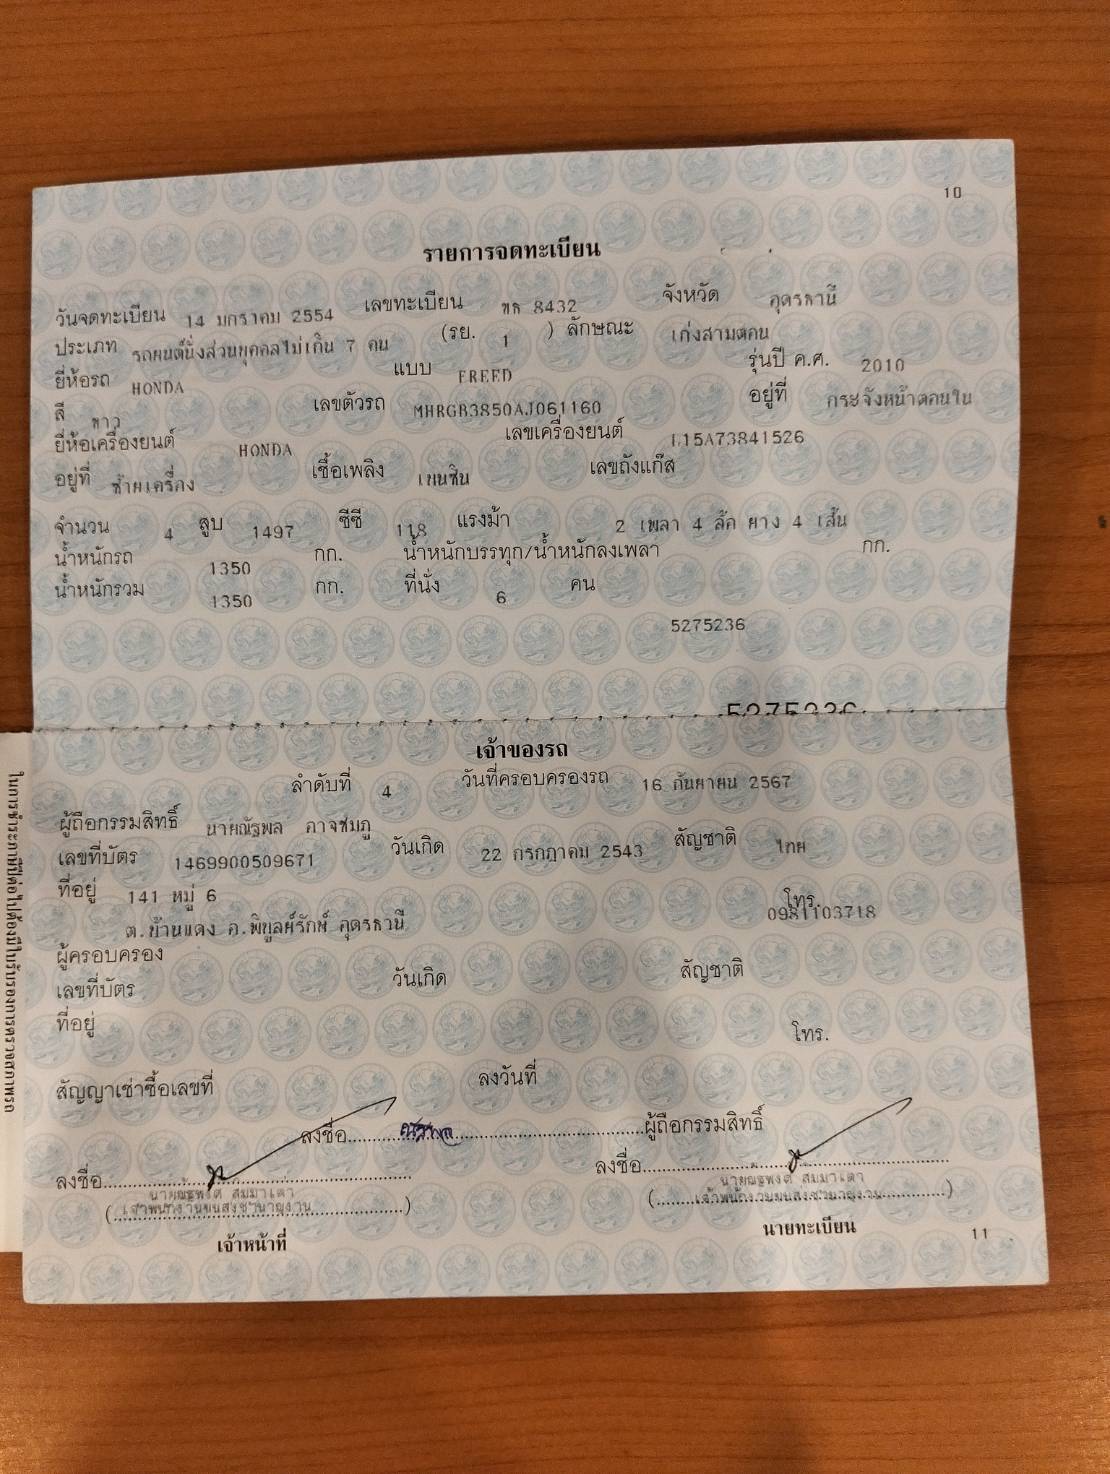 10
รายการจดทะเบียน
วันจดทะเบียน 14 มกราคม 2554 เลขทะเบียน 8432 จังหวัด อุดรธานี
ประเภท รถยนต์นั่งส่วนบุคคลไม่เกิน 7 คน (รย. 1 ) ลักษณะ เก๋งสามตอน
ยี่ห้อรถ HONDA แบบ FREED รุ่นปี ค.ศ. 2010
สี ขาว เลขตัวรถ MHRGB3850AJ061160 อยู่ที่ กระจังหน้าตอนใน
ยี่ห้อเครื่องยนต์ HONDA เลขเครื่องยนต์ L15A73841526
อยู่ที่ ซ้ายเครื่อง เชื้อเพลิง เบนซิน เลขถังแก๊ส
จำนวน 4 สูบ 1497 ซีซี 118 แรงม้า 2 เพลา 4 ล้อ ยาง 4 เส้น
น้ำหนักรถ 1350 กก. น้ำหนักบรรทุก/น้ำหนักลงเพลา กก.
น้ำหนักรวม 1350 กก. ที่นั่ง 6 คน
5275236
5275236
เจ้าของรถ
ลำดับที่ 4 วันที่ครอบครองรถ 16 กันยายน 2567
ผู้ถือกรรมสิทธิ์ นายณัฐพล อาจชมภู
เลขที่บัตร 1469900509671 วันเกิด 22 กรกฎาคม 2543 สัญชาติ ไทย
ที่อยู่ 141 หมู่ 6 โทร.
ต.บ้านแดง อ.พิบูลย์รักษ์ อุดรธานี 0981103718
ผู้ครอบครอง
เลขที่บัตร วันเกิด สัญชาติ
ที่อยู่ โทร.
สัญญาเช่าซื้อเลขที่ ลงวันที่
ลงชื่อ ณัฐพล ผู้ถือกรรมสิทธิ์
ลงชื่อ ลงชื่อ
เจ้าพนักงานขนส่งชำนาญงาน เจ้าพนักงานขนส่งชำนาญงาน
เจ้าหน้าที่ นายทะเบียน
11